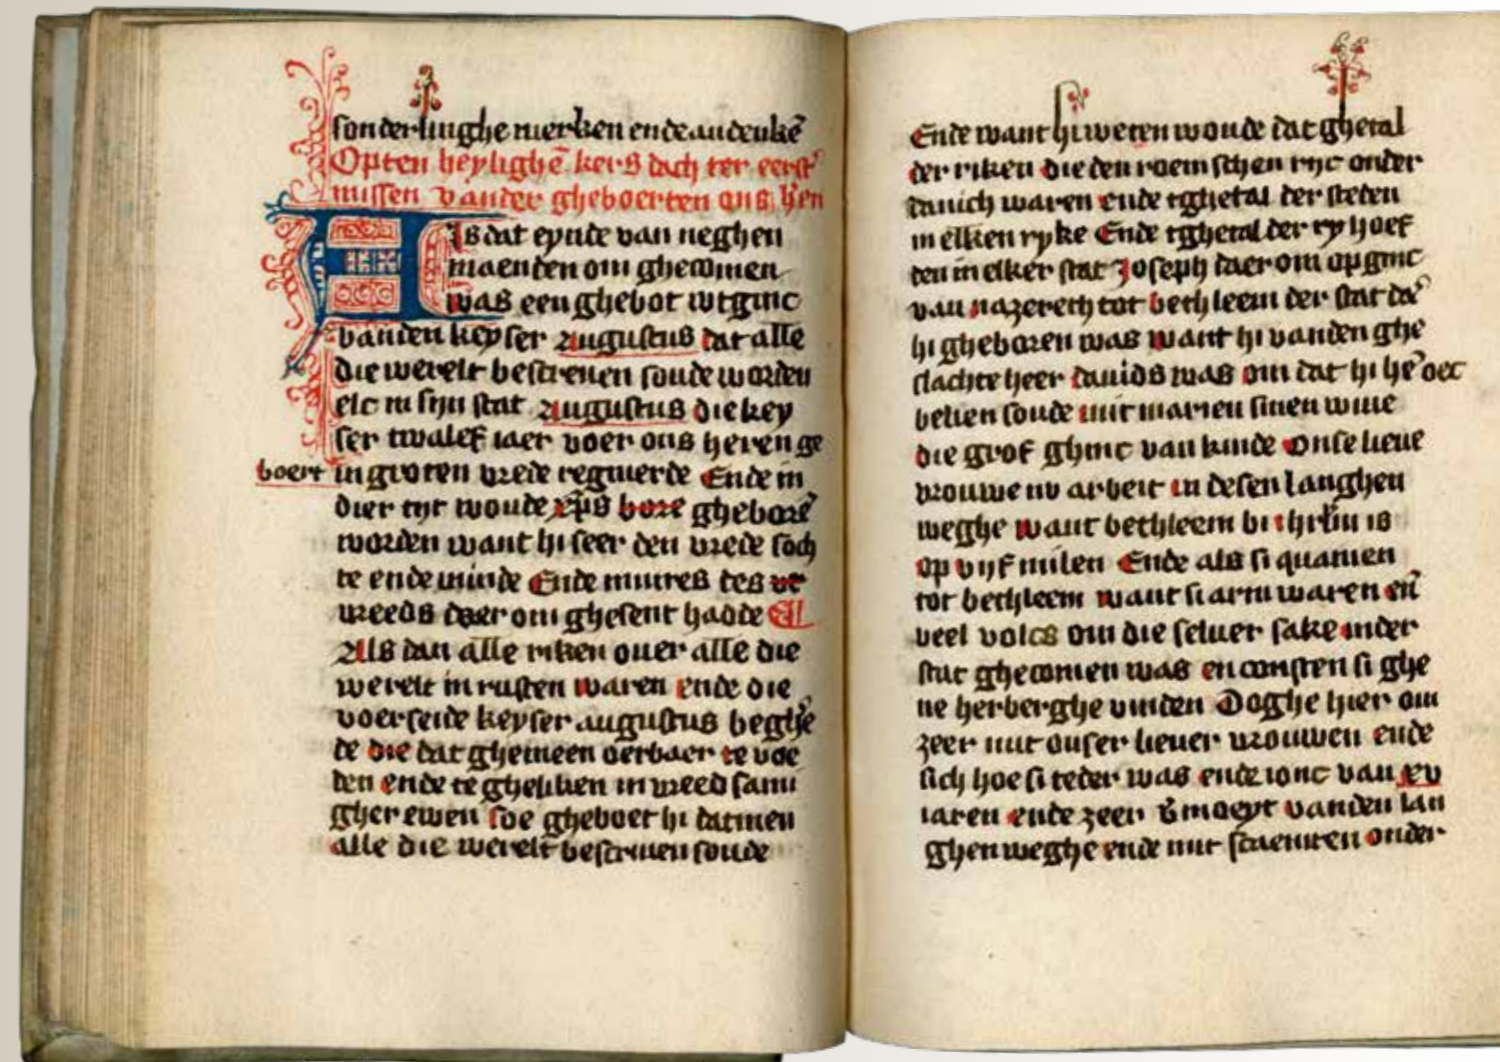 sonderlinghe merken ende andenkē
Opten heylighē kers dach ter eerst̕
missen vander gheboerten ons h̕en
Als dat eynde van neghen
maenden om ghecomen
was een ghebot wtginc
vanden keyser augustus dat alle
die werelt bescreuen soude worden
elc in sijn stat augustus die key
ser twalef iaer voer ons heren ge
boert in groten vrede regnierde Ende in
dier tyt woude xp̄s bore gheborē
worden want hi seer den vrede soch
te ende minde Ende des vr
vreeds daer om ghesent hadde
Als dan alle riken ouer alle die
werelt in rusten waren ende die
voerseide keyser augustus begh̕e
de die dat ghemeen oerbaer te voe
den ende te ghelikken in vreed sami
gher ewen soe gheboet hi datmen
alle die werelt bescriuen soude
Ende want hi weten woude dat ghetal
der riken die den roemschen ryc onder
danich waren ende tghetal der steden
in elken ryke Ende tghetal der ryhoef
den in elker stat Joseph daer om op ginc
van nazereth tot bethleem der stat da̕
hi gheboren was want hi vanden ghe
slachte heer dauids was om dat hi hē oec
belien soude mit marien sinen wiue
die grof ghinc van kinde Onse lieue
vrouwe nv arbeit in desen langhen
weghe want bethleem bi ihrl̄m is
op vijf milen Ende als si quamen
tot bethleem want si arm waren en̄
veel volcs om die seluer sake inder
stat ghecomen was en consten si ghe
ne herberghe vinden Doghe hier om
zeer mit onser lieuer vrouwen ende
sich hoe si teder was ende ionc van xv
iaren ende zeer v̄moeyt vanden lan
ghen weghe ende mit scaemten onder